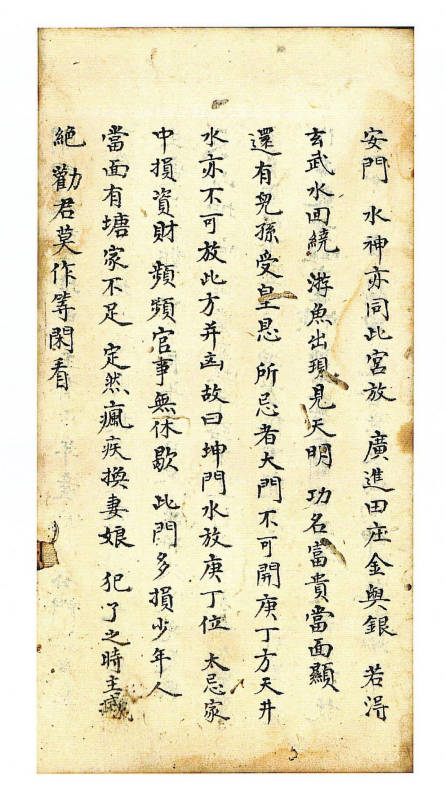 安門　水神亦同此宮放　廣進田庄金與銀　若淂
玄武水回繞　游魚出現見天明　功名富貴當面顯
還有兒孫受皇恩　所忌者大門不可開庚丁方天井
水亦不可放此方并凶故曰坤門水放庚丁位　大忌家
中損資財　頻頻官事無休歇　此門多損少年人
當面有塘家不足　定然瘋疾換妻娘　犯了之時主
絕　勸君莫作等閑看